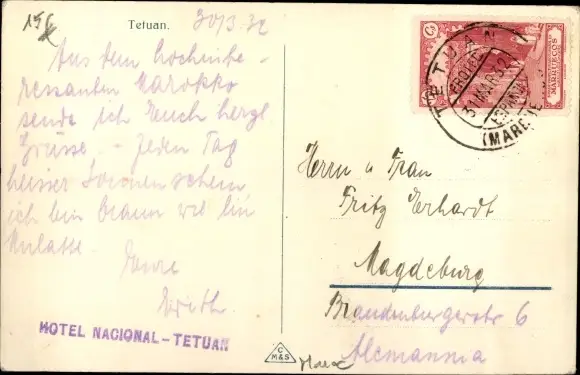 156
Tetuan.
30/3.32
Aus dem hochinte-
ressanten Marokko
sende ich Euch herzl.
Grüsse. - Jeden Tag
heisser Sonnenschein
ich bin braun wie ein
Mulatte.
Eure
Edith.
HOTEL NACIONAL-TETUAN
MARRUECOS
TETUAN
31 MAR 32
(MARRUE
Herrn u Frau
Fritz Erhardt
Magdeburg
Brandenburgerstr 6
Alemannia
C
M&S